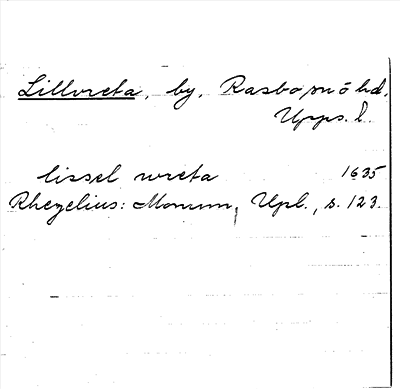 Lillvreta, by, Rasbo sn ö hd,
Upps. l.
lissel wreta 1635
Rhezelius: Monum, Upl., s. 123.